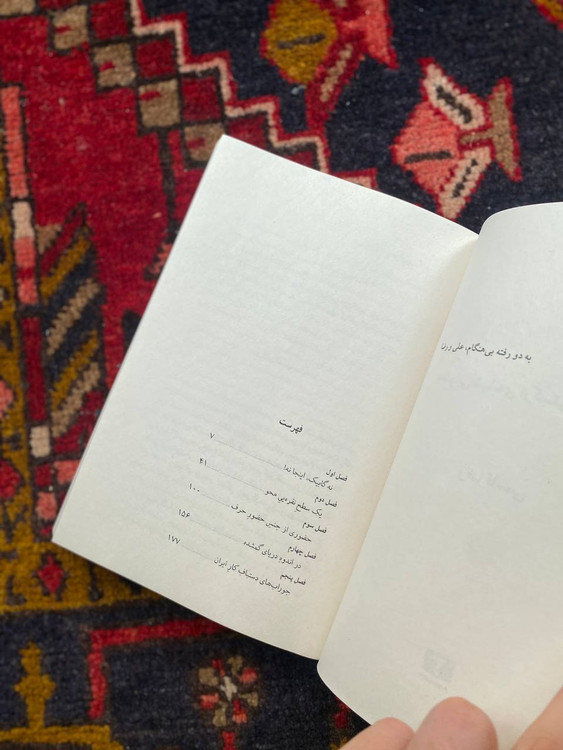 به دو رفته بی‌هنگام، علی و
فهرست
فصل اول
نه گابیک، اینجا نه! ۷
فصل دوم
یک سطح نقره‌یی محو ۴۱
فصل سوم
حضوری از جنس حضور حرف ۱۰۰
فصل چهارم
در اندوه دریای گمشده ۱۵۶
فصل پنجم
جوراب‌های دستباف کار ایران ۱۷۷